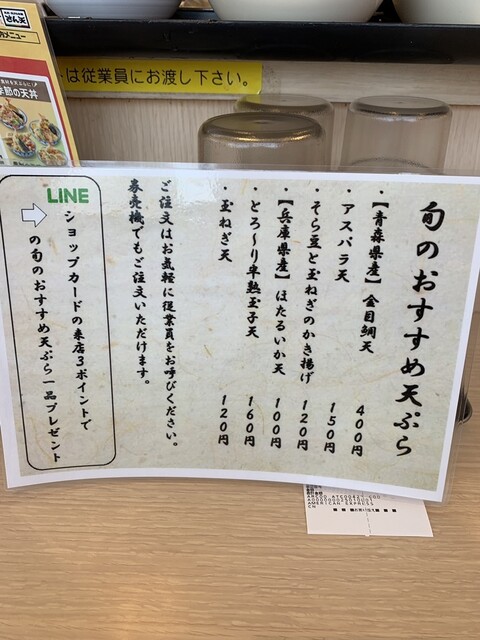 さん天
メニュー
季節の天丼
は従業員にお渡し下さい。
旬のおすすめ天ぷら
・【青森県産】金目鯛天 400円
・アスパラ天 150円
・そら豆と玉ねぎのかき揚げ 120円
・【兵庫県産】ほたるいか天 100円
・とろ~り半熟玉子天 160円
・玉ねぎ天 120円
ご注文はお気軽に従業員をお呼びください。
券売機でもご注文いただけます。
LINE
ショップカードの来店3ポイントで
の旬のおすすめ天ぷら一品プレゼント
AMERICAN EXPRESS